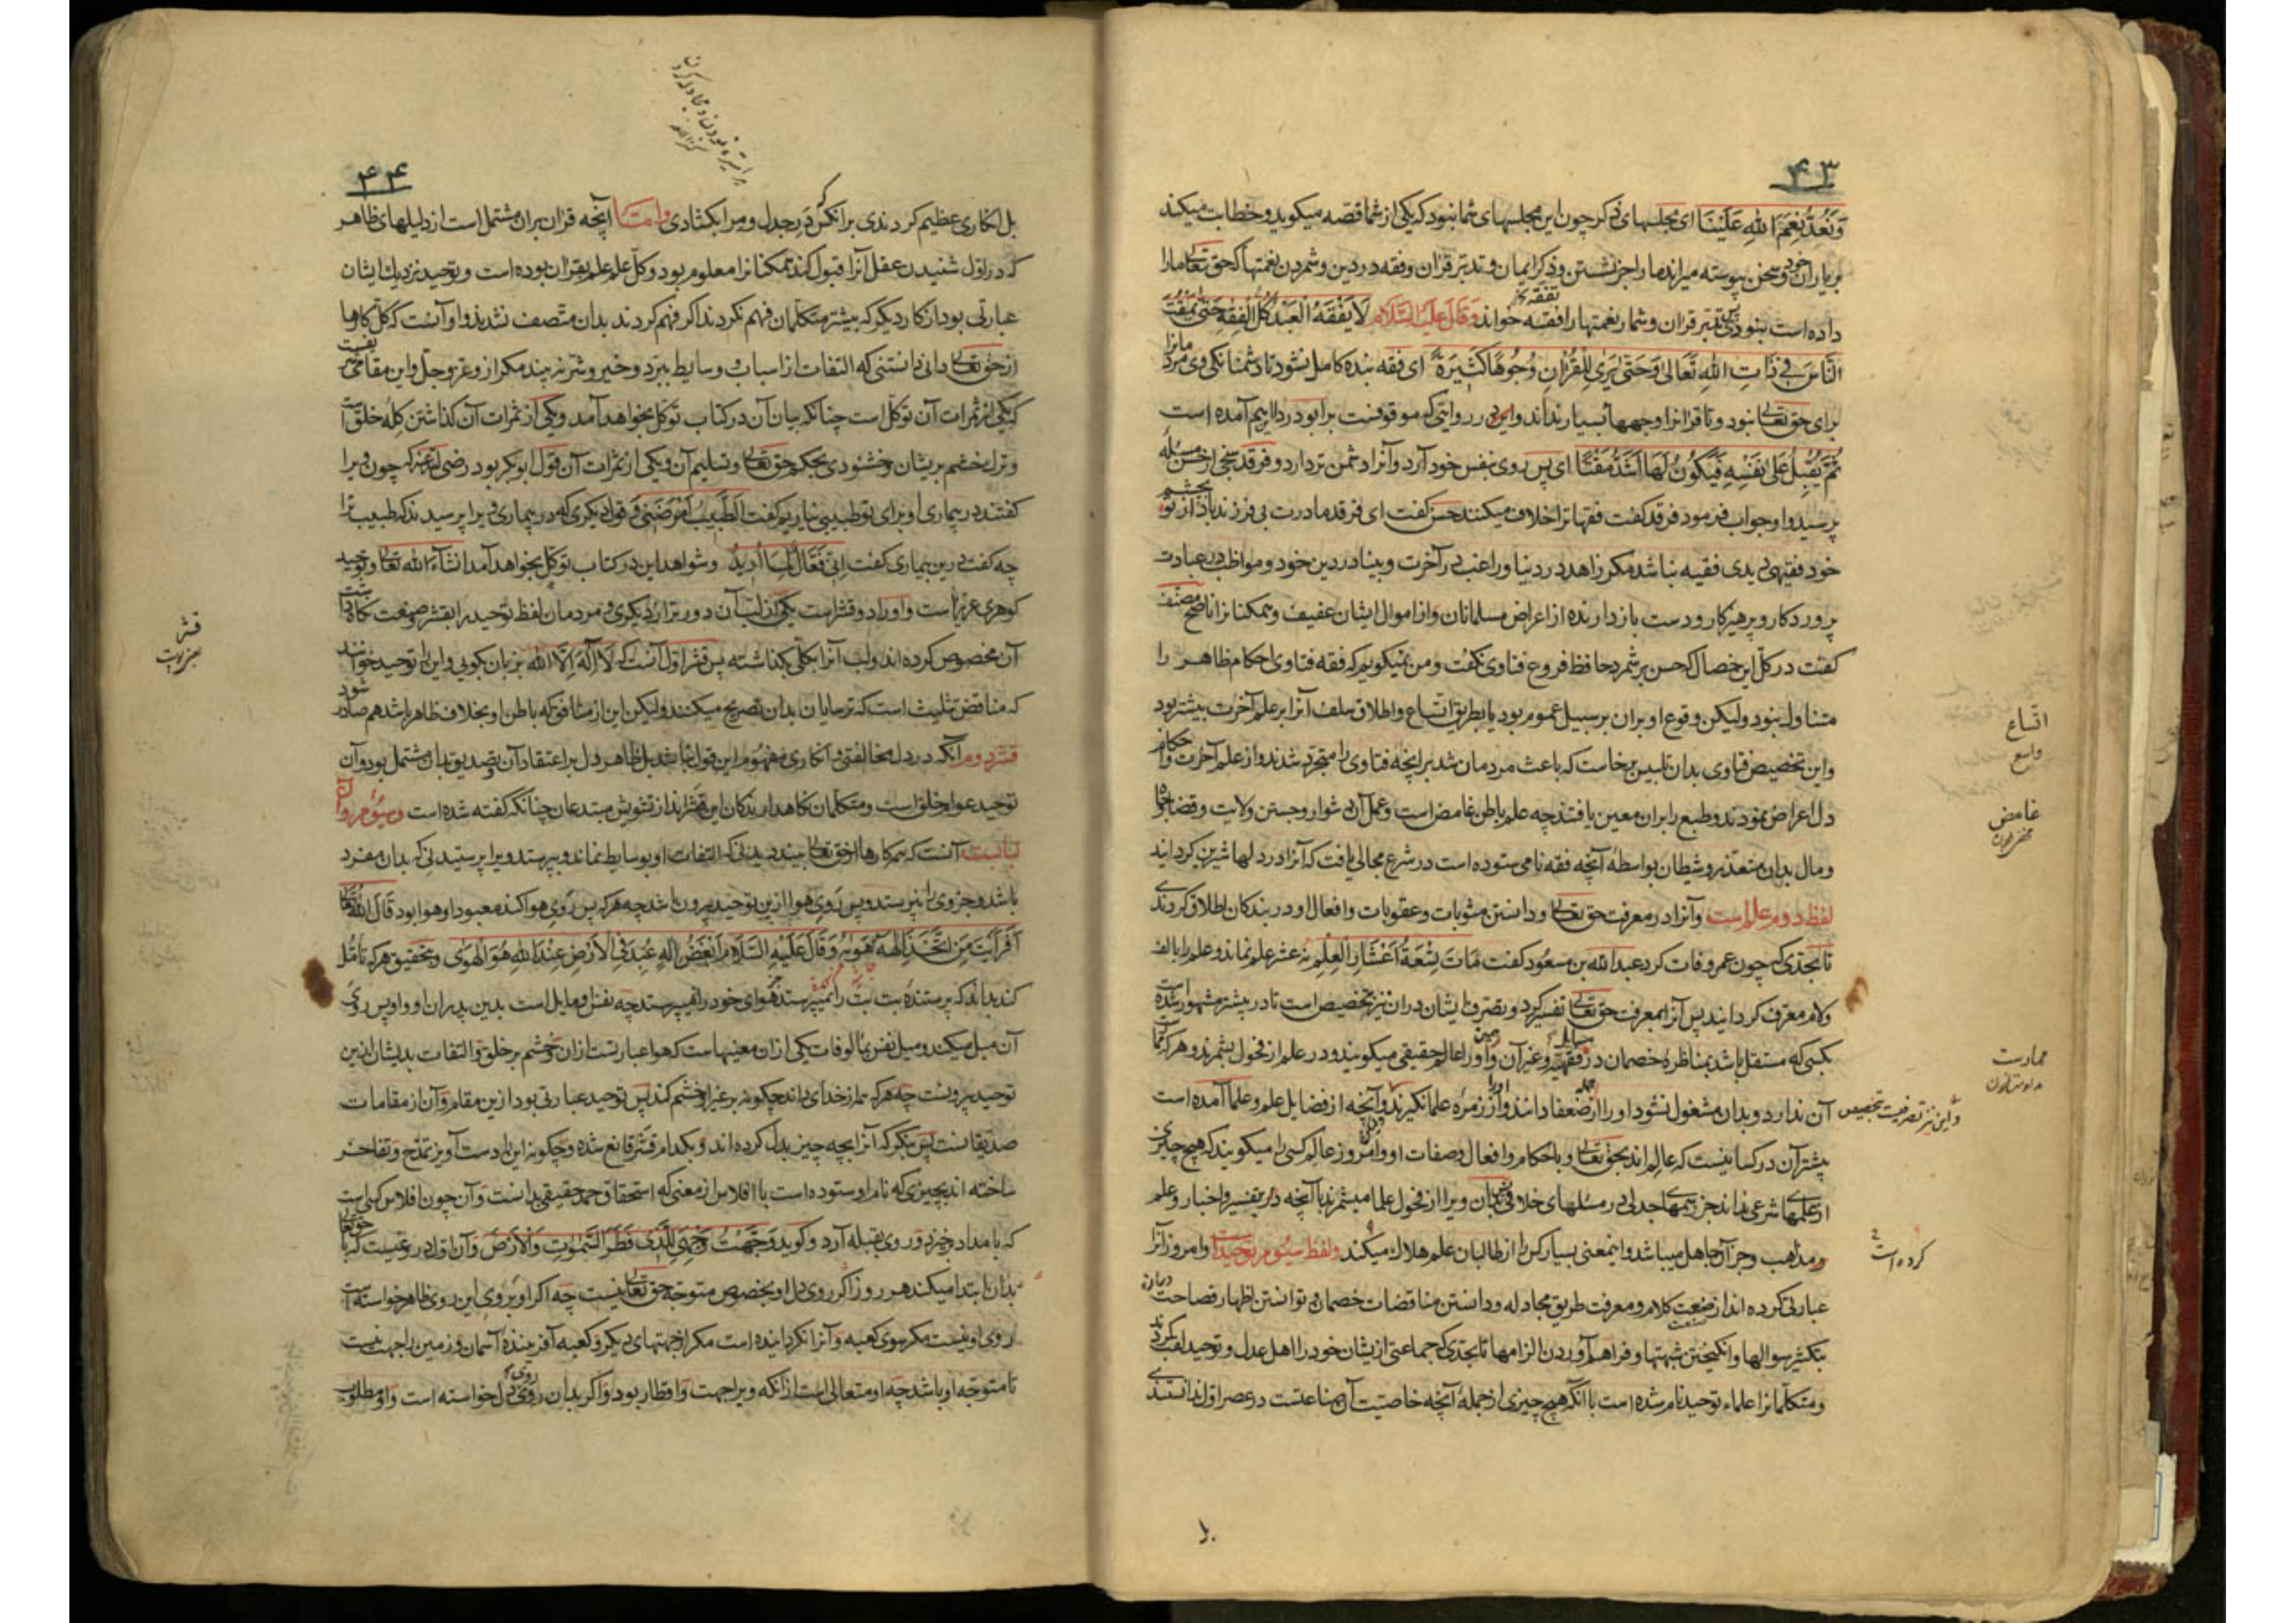 ۴۳
وَنَعُدُّ نِعَمَ اللهِ عَلَيْنَا ای مجلسهای ذکر چون این مجلسهای شما نبود که یکی از شما قصه میگوید و خطابت میکند
بر یاران خود و سخن پیوسته میراند ما را جز نشستن و ذکر ایمان و تدبر قران و فقه در دین و شمردن نعمتها که حق تعالی ما را
داده است نبودی تدبر قران و شمار نعمتها را فقه خواند وَقَالَ عَلَیْهِ السَّلَام لَا یَفْقَهُ الْعَبْدُ كُلَّ الْفِقْهِ حَتَّى يَمْقُتَ
النَّاسَ فِي ذَاتِ اللهِ تَعَالَى وَحَتَّى يَرَى لِلْقُرْآنِ وُجُوهًا كَثِيرَةً ای فقه بنده کامل نشود تا دشمنانکی وی مردمانرا
برای حق تعالی نبود و تا قرانرا وجهها بسیار نداند و این در روایتی که موقوفست بر ابو دردا اینهم آمده است
ثُمَّ يُقْبِلُ عَلَى نَفْسِهِ فَيَكُونُ لَهَا أَشَدَّ مَقْتًا ای پس روی بنفس خود آرد و آنرا دشمن تر دارد و فرقد سبخی از حسن مسئله
پرسید و او جواب فرمود فرقد گفت فقها ترا خلاف میکنند حسن گفت ای فرقد مادرت بی فرزند باد از تو بچشم
خود فقیهی دیدی فقیه نباشد مکر زاهد در دنیا و راغب در آخرت و بینا در دین خود و مواظب در عبادت
پروردکار و پرهیزکار و دست بازدارنده از اعراض مسلمانان و از اموال ایشان عفیف و همکنانرا ناصح مصنف
کفت در کل این خصال که حسن بر شمرد حافظ فروع فتاوی نکفت و من نمیکویم که فقه فتاوی احکام ظاهر را
متناول نبود ولیکن وقوع او بران بر سبیل عموم بود یا بطریق اتساع و اطلاق سلف آنرا بر علم آخرت بیشتر بود
و این تخصیص فتاوی بدان تلبیس بخاست که باعث مردمان شد بر انچه فتاوی را متجرد شدند و از علم آخرت و احکام
دل اعراض نمودند و طبع را بران معین یافتند چه علم باطن غامض است و عمل آن دشوار و جستن ولایت و قضا و جاه
و مال بدان متعذر و شیطان بواسطه آنچه فقه نامی ستوده است در شرع مجالی یافت که آنرا در دلها شیرین کردانید
لفظ دوم علم است و آنرا در معرفت حق تعالی و دانستن مثوبات و عقوبات و افعال او در بندکان اطلاق کردندی
تا بحدی که چون عمر وفات کرد عبد الله بن مسعود کفت مَاتَ تِسْعَةُ أَعْشَارِ الْعِلْمِ نه عشر علم نماند و علم را بالف
و لام معرف کردانید پس آنرا بمعرفت حق تعالی تفسیر کرد و تصرف ایشان دران نیز تخصیص است تا در بیشتر مشهور شده است
بکسی که مستقل باشد بمناظره خصمان در مسایل فقهیه و غیر آن و او را عالم حقیقی میکویند و در علم از فحول شمرند و هر که مما
آن ندارد و بدان مشغول نشود او را از جمله ضعفا دانند و او را از زمره علما نکیرند و آنچه از فضایل علم و علما آمده است
بیشتر آن در کسانیست که عالم اند بحق تعالی و باحکام و افعال و صفات او و امروز عالم کسی را میکویند که هیچ چیزی
از علمهای شرعی نداند جز رسمهای جدلی در مسئلهای خلافی و بدان ویرا از فحول علما میشمرند با آنچه در تفسیر و اخبار و علم
و مذاهب و جز آن جاهل میباشد و اینمعنی بسیار کس را از طالبان علم هلاک میکند ولفظ سیوم توحید است و امروز آنرا
عبارتی کرده اند از صنعت کلام و معرفت طریق مجادله و دانستن مناقضات خصمان و توانستن اظهار فصاحت درباره
بتکثیر سوالها و انکیختن شبهتها و فراهم آوردن الزامها تا بحدی که جماعتی از یشان خود را اهل عدل و توحید لقب کردند
و متکلمانرا علماء توحید نام شده است با آنکه هیچ چیزی از جمله آنچه خاصیت آن صناعتست در عصر اول ندانستندی
اتساع
واسع
غامض
ممارست
و این نیز تصرفیست بتخصیص
کرده است
۴۴
بل انکاری عظیم کردندی برانکس که در جدل و مرا بکشادی واما آنچه قران بران مشتمل است از دلیلهای ظاهر
که در اول شنیدن عقل آنرا قبول کند همکنانرا معلوم بود و کل علم علم بقران بوده است و توحید نزدیک ایشان
عبارتی بود از کار دیکر که بیشتر متکلمان فهم نکردند و اکر فهم کردند بدان متصف نشدند و او آنست که کل کارها
از حق تعالی دانی دانستنی که التفات از اسباب و وسایط ببرد و خیر و شر نه بیند مکر از و عز و جل و این مقامی شریفست
که یکی از ثمرات آن توکل است چنانکه بیان آن در کتاب توکل بخواهد آمد و یکی از ثمرات آن کذاشتن کله خلق است
و ترک خشم بریشان و خشنودی بحکم حق تعالی و تسلیم آن و یکی از ثمرات آن قول ابوبکر بود رضی الله عنه که چون ویرا
کفتند در بیماری او برای تو طبیبی بیاریم کفت الطَّبِيبُ أَمْرَضَنِي و قول دیکری که در بیماری ویرا پرسیدند که طبیب ترا
چه کفت درین بیماری کفت اِنِّی فَعَّالٌ لِمَا اُرِیدُ و شواهد این در کتاب توکل بخواهد آمد انشاء الله تعالی و توحید
کوهری عزیز است و او را دو قشر است یکی از لب آن دورتر از دیکری و مردمان لفظ توحید را بقشر و صنعت نکاهداشت
آن مخصوص کرده اند و لب آنرا بکلی بکذاشته پس قشر اول آنست که لا اله الا الله بزبان کویی و این را توحید خوانند
که مناقض تثلیث است که ترسایان بدان تصریح میکنند و لیکن این از منافق که باطن او بخلاف ظاهر باشد هم صادر شود
قشر دوم آنکه در دل مخالفتی و انکاری مفهوم این قول نباشد بل ظاهر دل بر اعتقاد آن و تصدیق بدان مشتمل بود و آن
توحید عوام خلق است و متکلمان نکاهدارندکان این قشرند از تشویش مبتدعان چنانکه کفته شده است و سیوم و آن
لباب است آنست که همه کارها از حق تعالی بیند دیدنی که التفات او بوسایط نماند و بپرستد ویرا پرستیدنی که بدان مفرد
باشد و جز وی را نپرستد و پس روی هوا ازین توحید بیرون باشد چه هر که پس روی هوا کند معبود او هوا بود قال الله تعالی
أَفَرَأَيْتَ مَنِ اتَّخَذَ إِلَهَهُ هَوَاهُ وَقَالَ عَلَيْهِ السَّلَام أَبْغَضُ إِلَهٍ عُبِدَ فِي الْأَرْضِ عِنْدَ اللهِ هُوَ الْهَوَى و بتحقیق هر که تامل
کند بداند که پرستنده بت بت را نمیپرستد هوای خود را میپرستد چه نفس او مایل است بدین پدران او و او پس روی
آن میل میکند و میل نفس بمالوفات یکی از ان معنیهاست که هوا عبارتست از ان و خشم بر خلق و التفات بدیشان ازین
توحید بیرونست چه هر که همه از خدای داند چکونه بر غیر او خشم کند پس توحید عبارتی بود ازین مقام و آن از مقامات
صدیقانست پس بنکر که آنرا بچه چیز بدل کرده اند و بکدام قشر قانع شده و چکونه این را دست آویز تمدح و تفاخر
ساخته اند بچیزی که نام او ستوده است با افلاس از معنی که استحقاق حمد حقیقی بدانست و آن چون افلاس کسی است
که بامداد برخیزد و روی بقبله آرد و کوید وَجَّهْتُ وَجْهِيَ لِلَّذِي فَطَرَ السَّمَوَاتِ وَالْأَرْضَ و آن اول دروغیست که با حق تعالی
بدان ابتدا میکند هر روز اکر روی دل او بخصوص متوجه حق تعالی نیست چه اکر او بروی این روی ظاهر خواسته است
روی او نیست مکر سوی کعبه و آنرا نکردانیده است مکر از جهتهای دیکر و کعبه آفریننده آسمان و زمین را جهت نیست
تا متوجه او باشد چه او متعالی است از انکه ویرا جهت و اقطار بود و اکر بدان روی دل خواسته است و او مطلوب
قشر